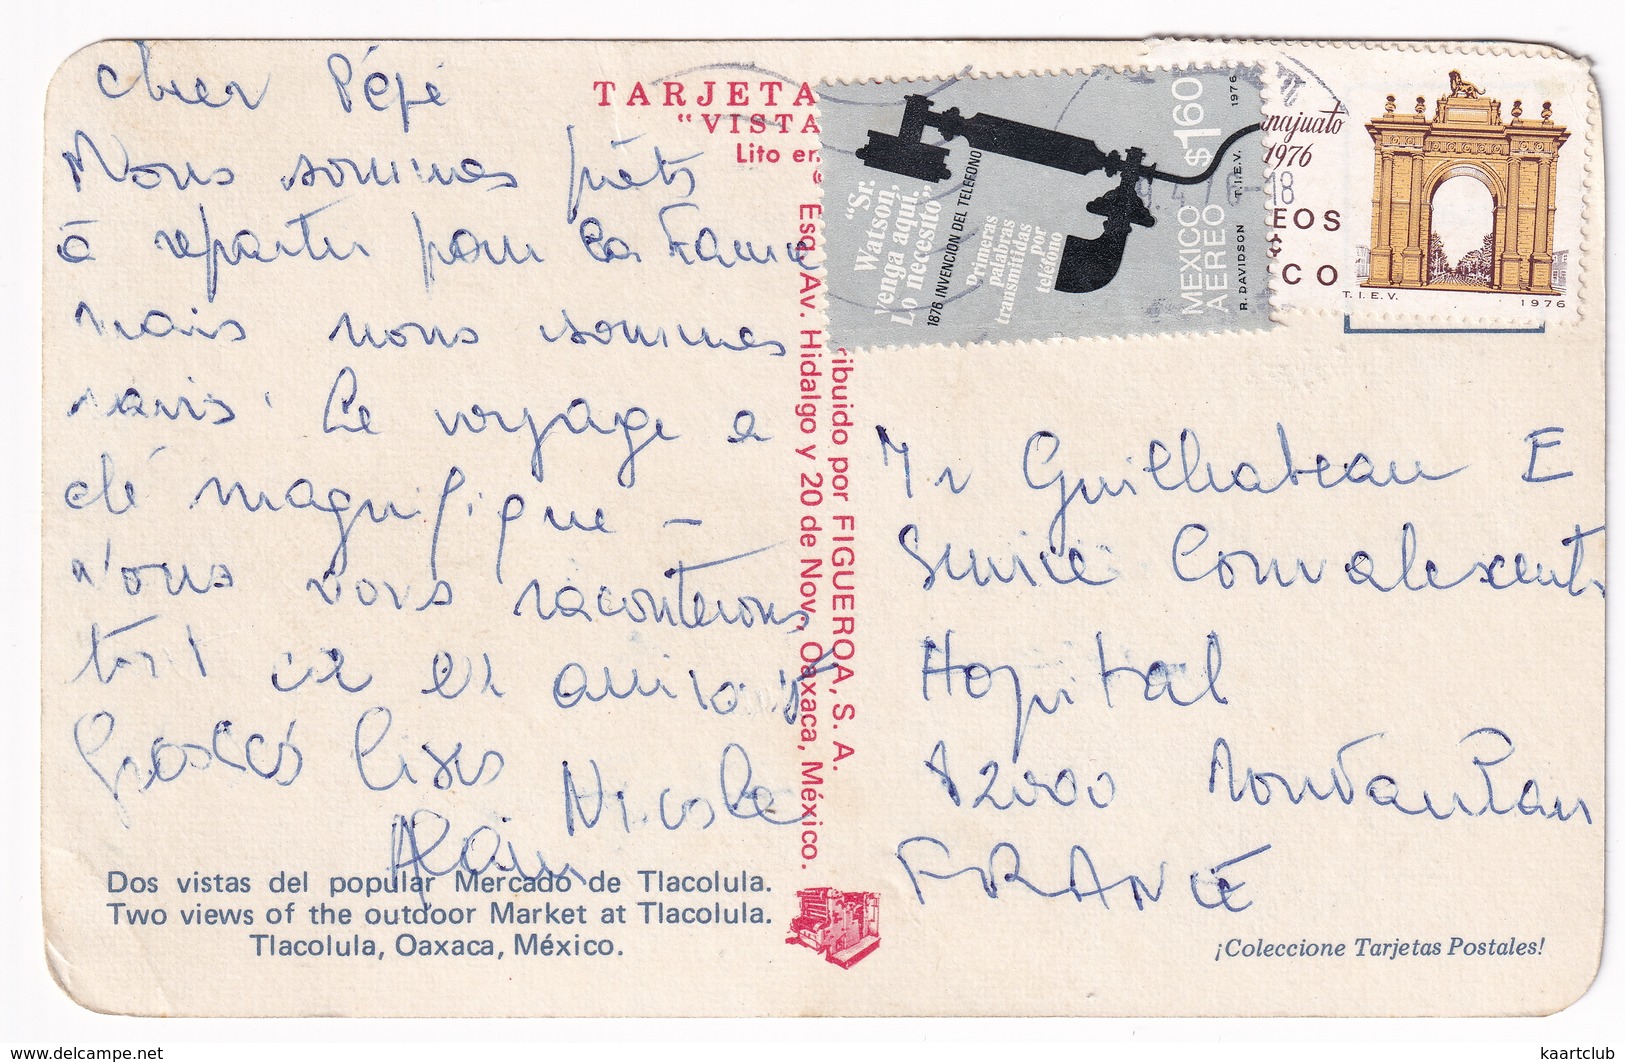 Cher Pépé
Nous sommes prêts
à repartir pour la France
mais nous sommes
ravis. Le voyage a
été magnifique -
Nous vous raconterons
tout
Grosses bises
Nicole
Alain
TARJETA
"VISTA
Lito en
Esq. Av. Hidalgo y 20 de Nov., Oaxaca, México.
ribuido por FIGUEROA, S. A.
"Sr.
Watson,
venga aquí.
Lo necesito",
1876 INVENCION DEL TELEFONO
Primeras
palabras
transmitidas
por
teléfono
MEXICO $1.60
AEREO
R. DAVIDSON T.I.E.V. 1976
anajuato
1976
EOS
CO
T.I.E.V. 1976
Mr Guilhabeau E
Service Convalescents
Hopital
82000 Montauban
FRANCE
Dos vistas del popular Mercado de Tlacolula.
Two views of the outdoor Market at Tlacolula.
Tlacolula, Oaxaca, México.
¡Coleccione Tarjetas Postales!
delcampe.net
kaartclub